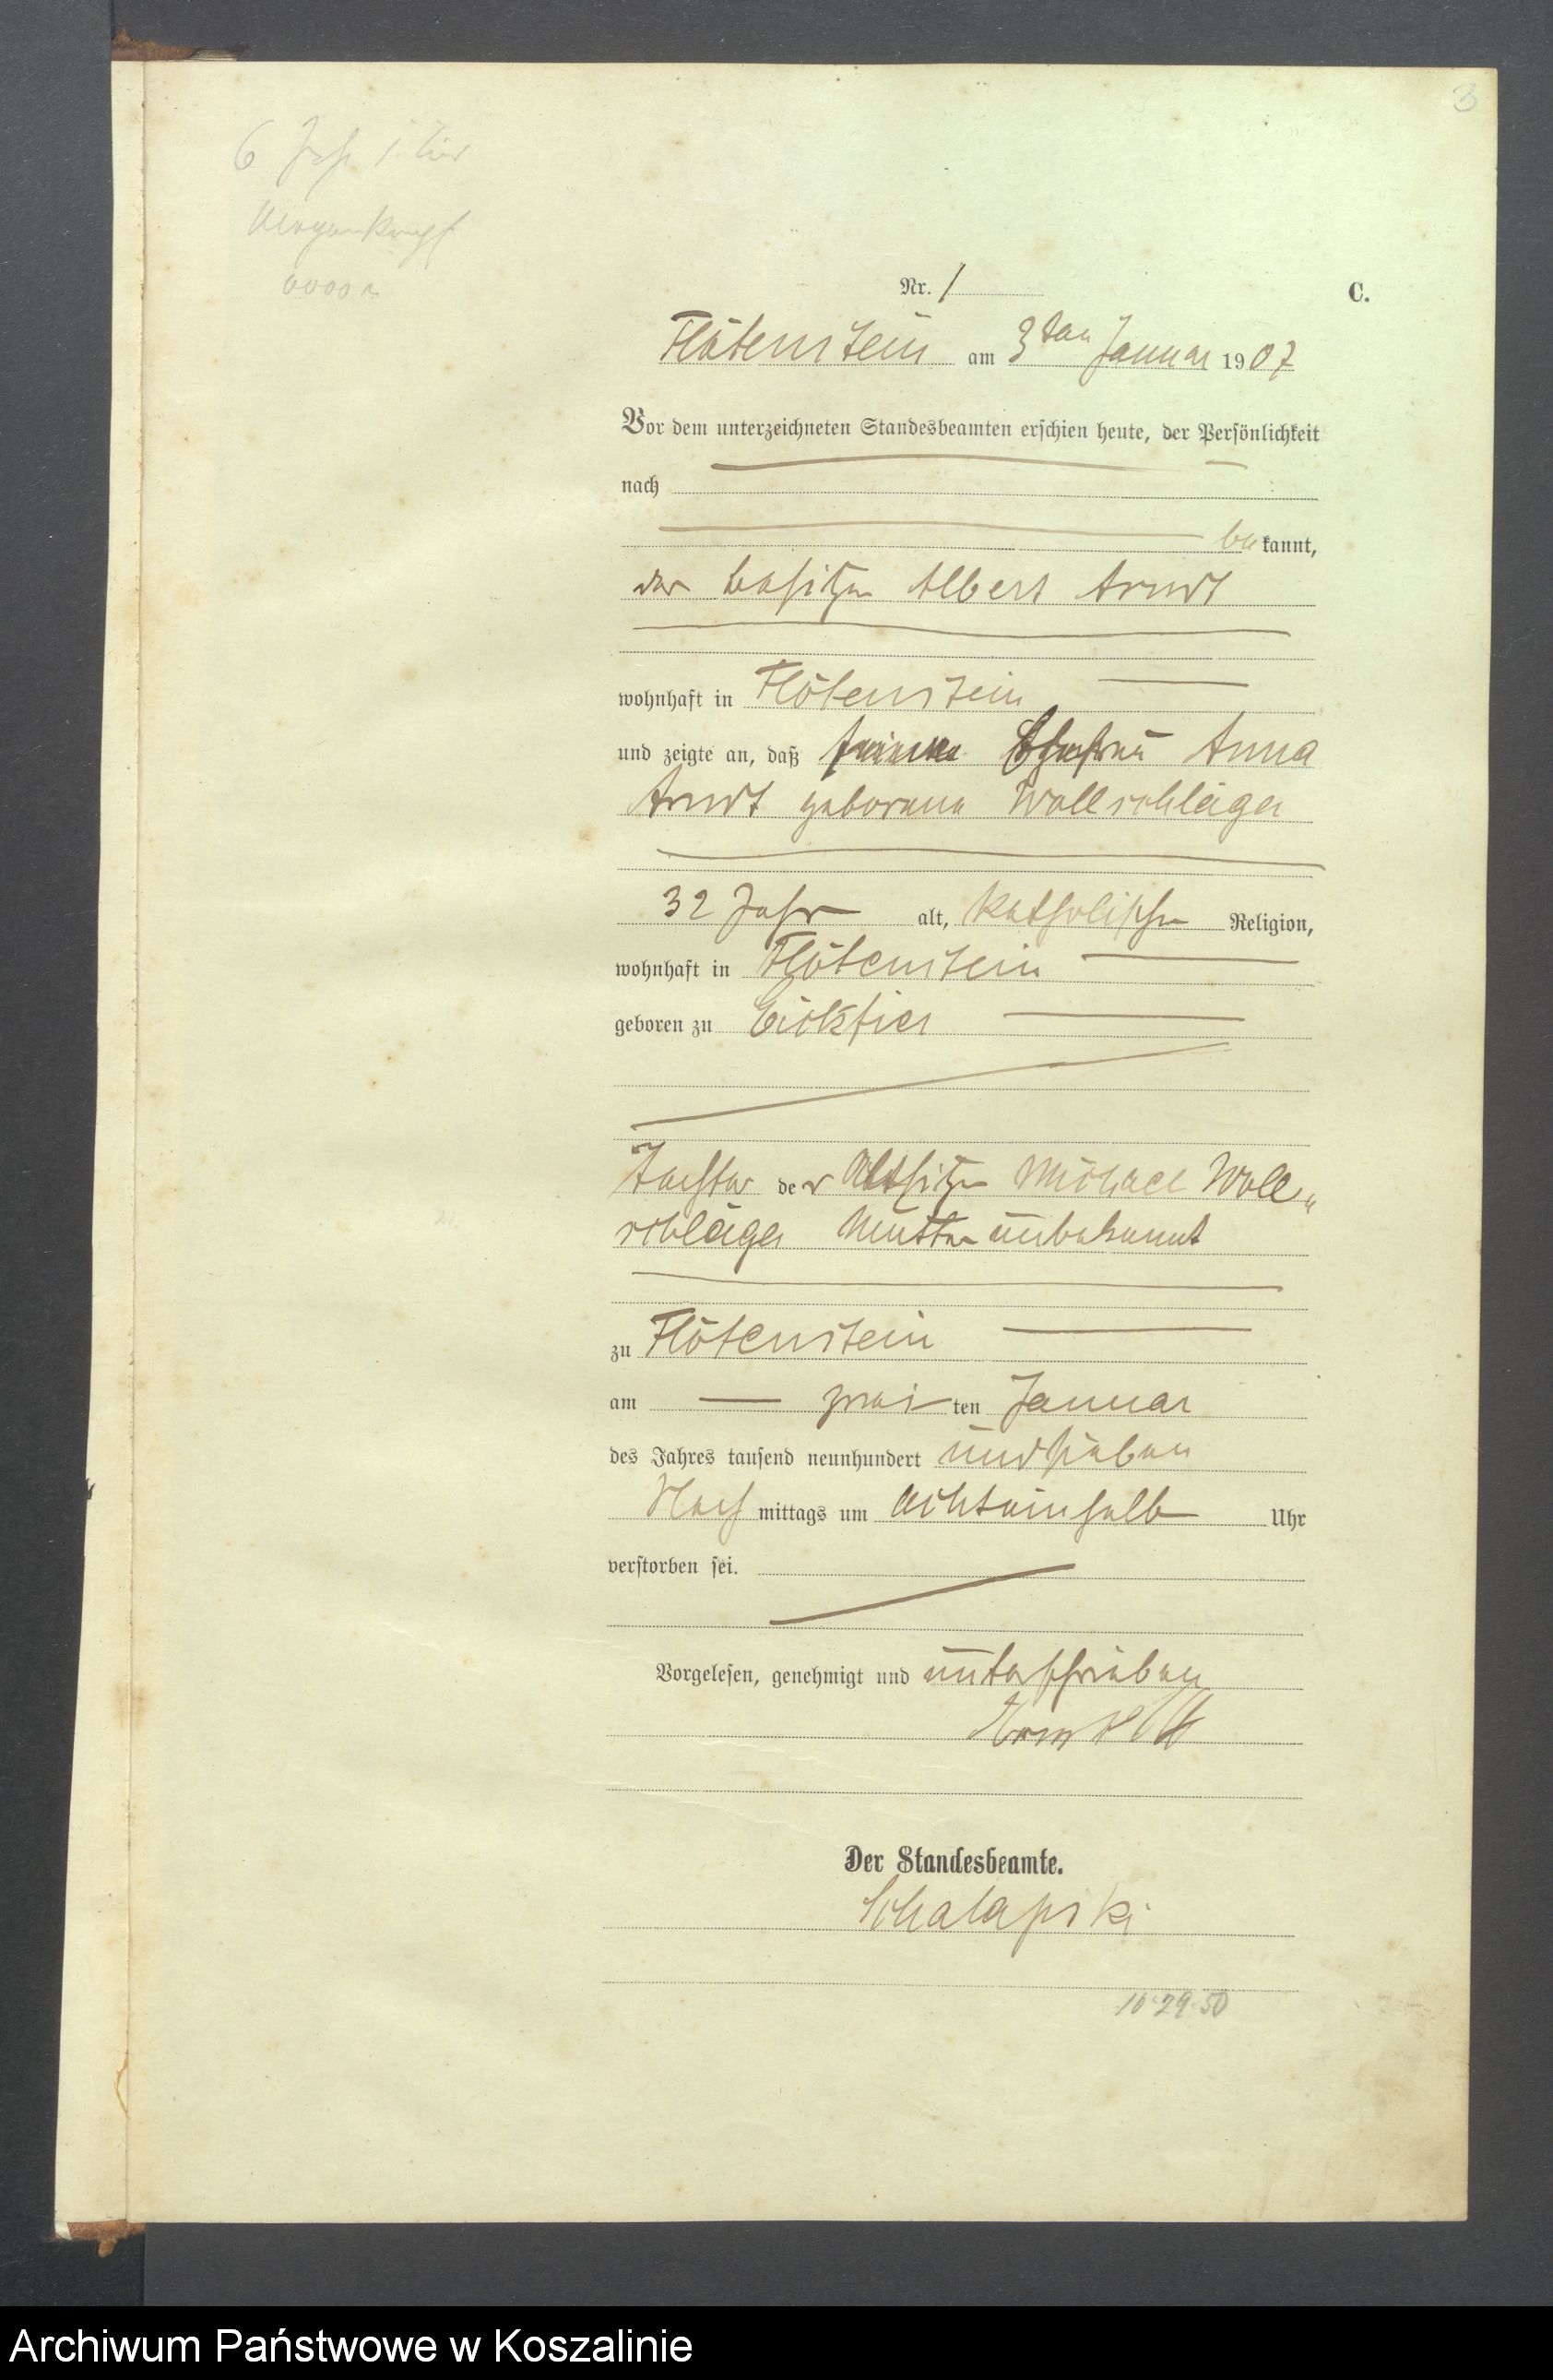 3
6
Nr. 1
C.
Flötenstein am 3ten Januar 1907
Vor dem unterzeichneten Standesbeamten erschien heute, der Persönlichkeit
nach
bekannt,
der Besitzer Albert Arndt
wohnhaft in Flötenstein
und zeigte an, daß seine Ehefrau Anna
Arndt geborene Wollschläger
32 Jahr alt, katholischer Religion,
wohnhaft in Flötenstein
geboren zu Eickfier
Tochter der Altsitzer Michael Woll„
schläger Mutter unbekannt
zu Flötenstein
am zwei ten Januar
des Jahres tausend neunhundert und sieben
Nach mittags um achteinhalb Uhr
verstorben sei.
Vorgelesen, genehmigt und unterschrieben
Der Standesbeamte.
Schalapski
10·29·50
Archiwum Państwowe w Koszalinie